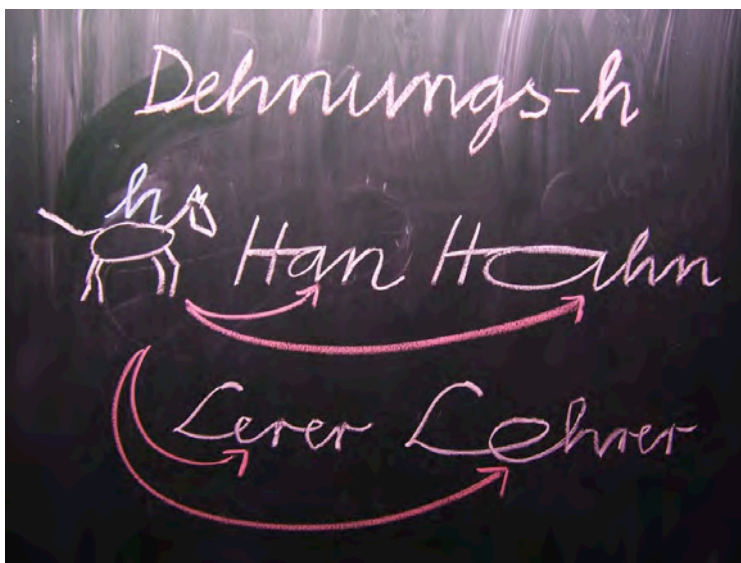 Dehnungs-h
h
Han Hahn
Lerer Lehrer